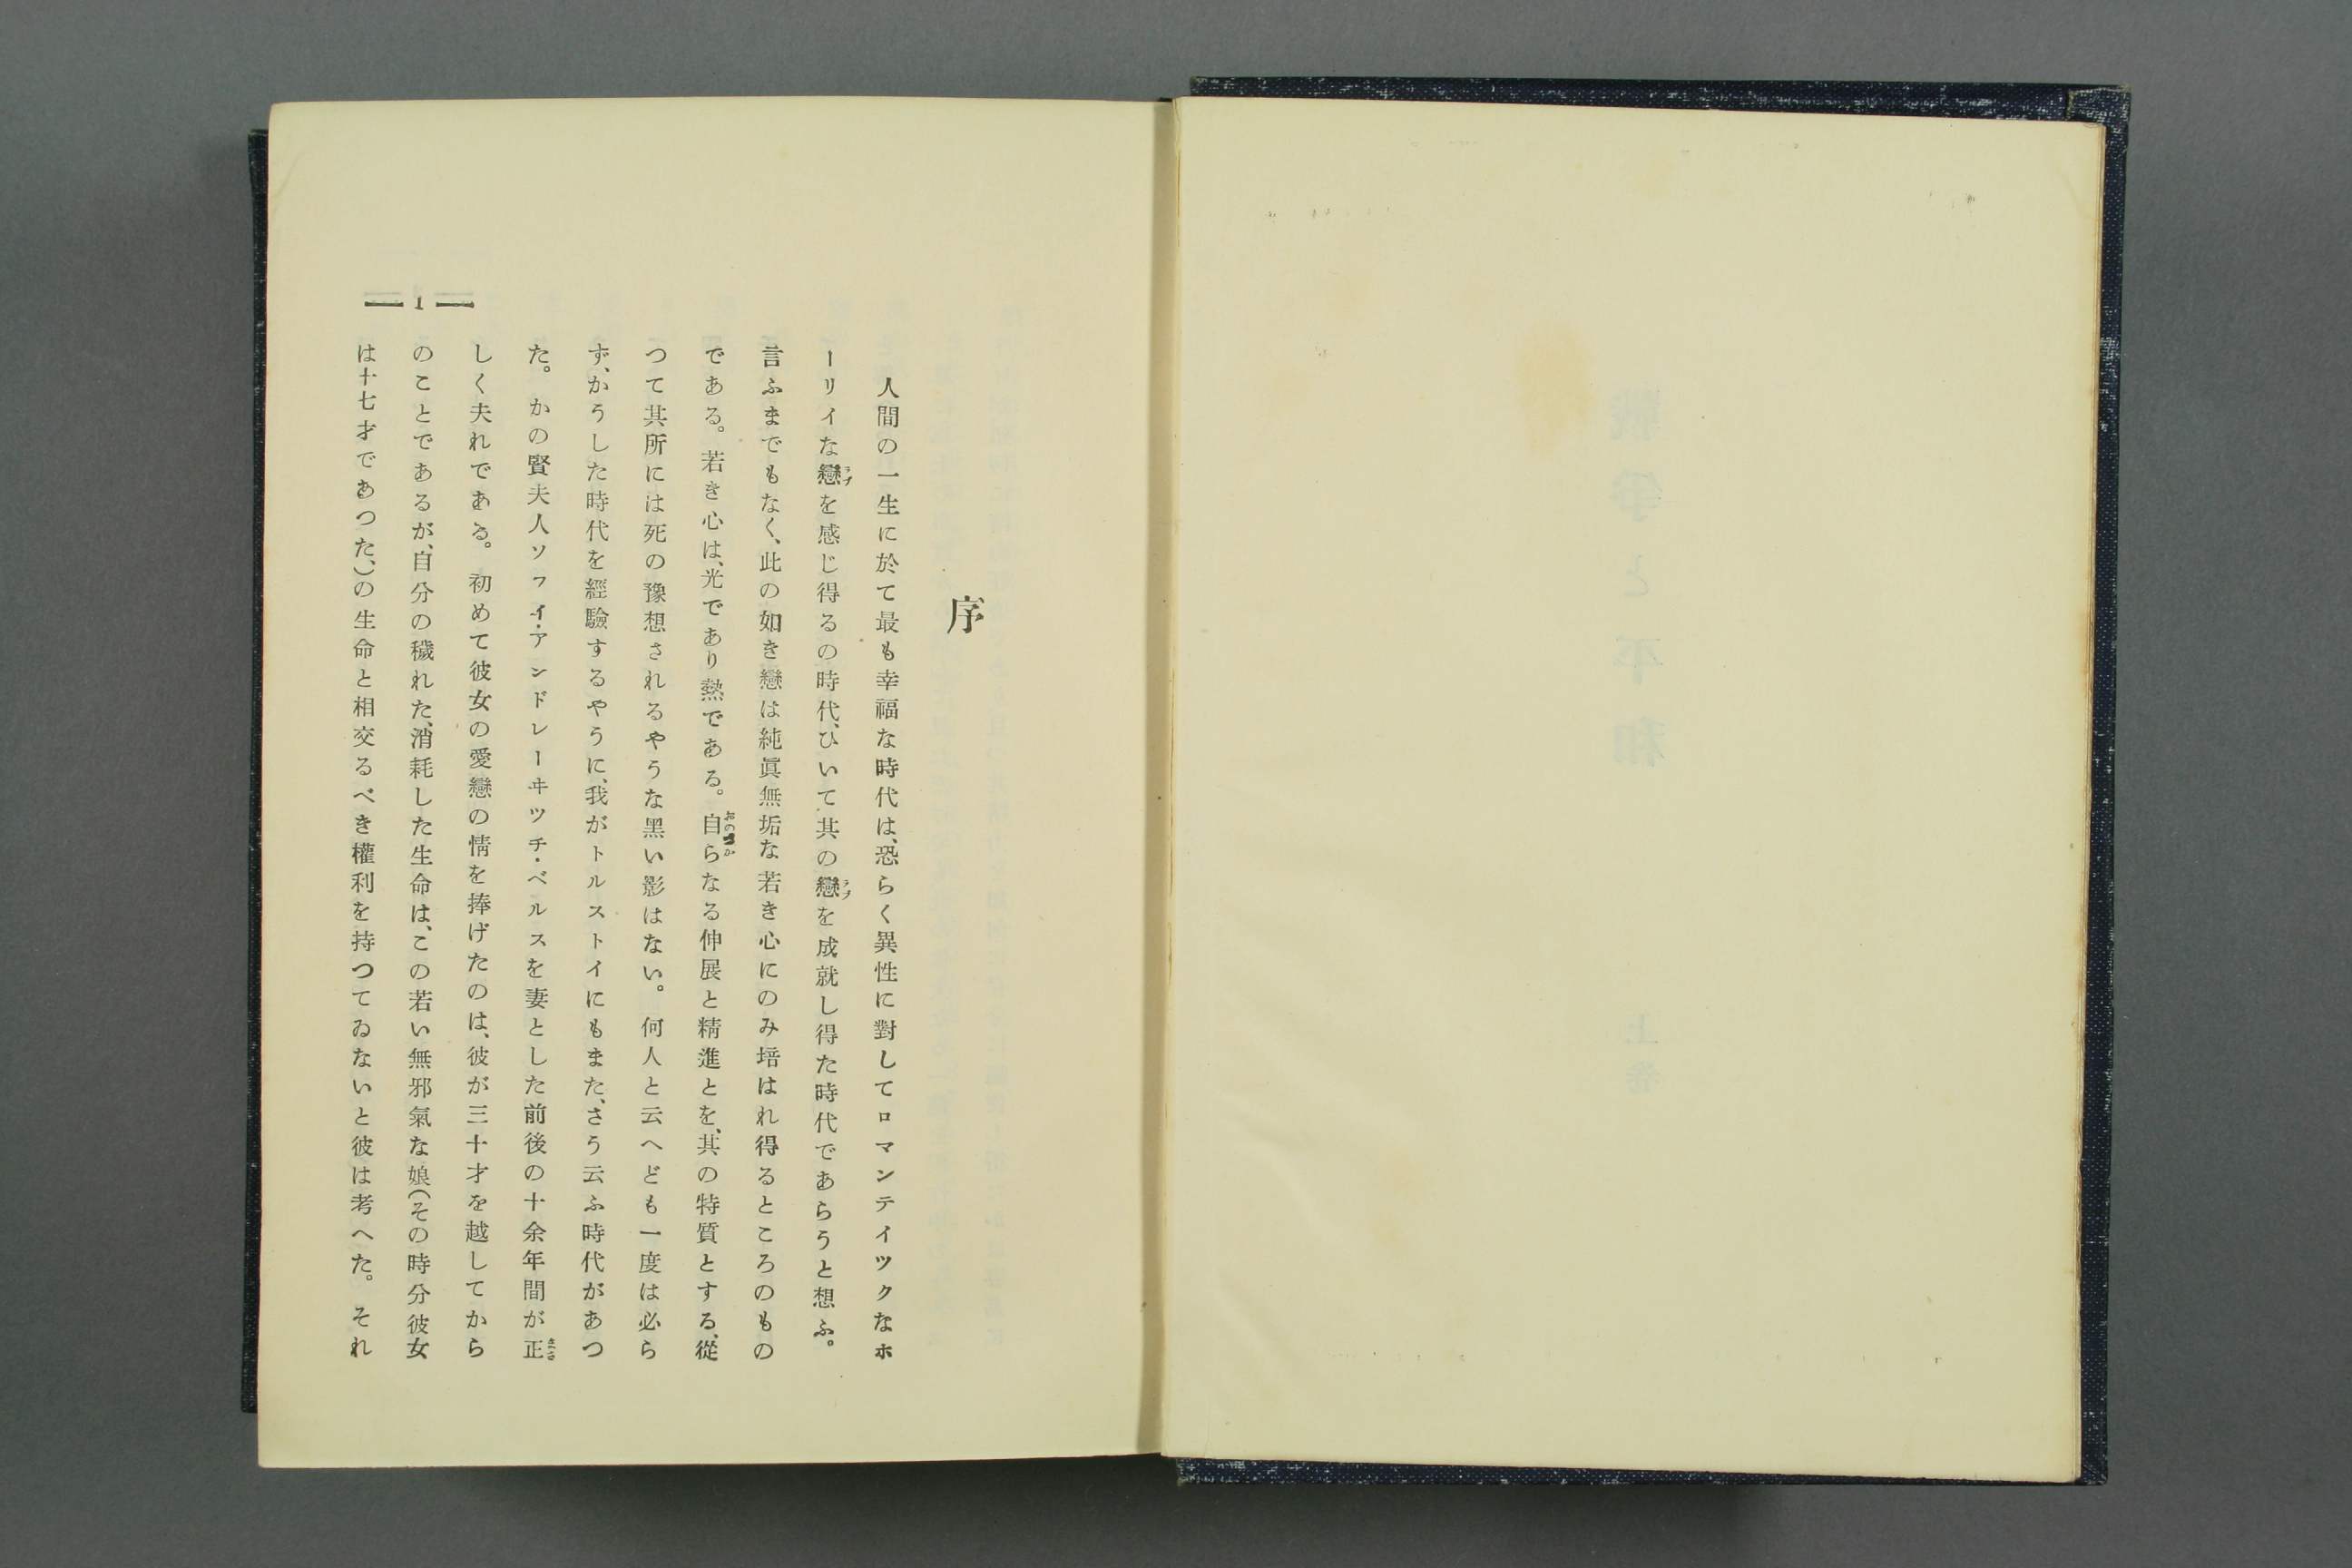 戰爭と平和
上卷
序
人間の一生に於て最も幸福な時代は、恐らく異性に對してロマンテイツクなホ
ーリイな戀を感じ得るの時代、ひいて其の戀を成就し得た時代であらうと想ふ。
ラブ
ラブ
言ふまでもなく、此の如き戀は純眞無垢な若き心にのみ培はれ得るところのもの
である。若き心は、光であり熱である。自らなる伸展と精進とを、其の特質とする、從
つて其所には死の豫想されるやうな黑い影はない。何人と云へども一度は必ら
ず、かうした時代を經驗するやうに、我がトルストイにもまた、さう云ふ時代があつ
た。かの賢夫人ソフイ・アンドレーヰツチ・ベルスを妻とした前後の十余年間が正
しく夫れである。初めて彼女の愛戀の情を捧げたのは、彼が三十才を越してから
のことであるが、自分の穢れた、消耗した生命は、この若い無邪氣な娘(その時分彼女
は十七才であつた、)の生命と相交るべき權利を持つてゐないと彼は考へた。それ
1